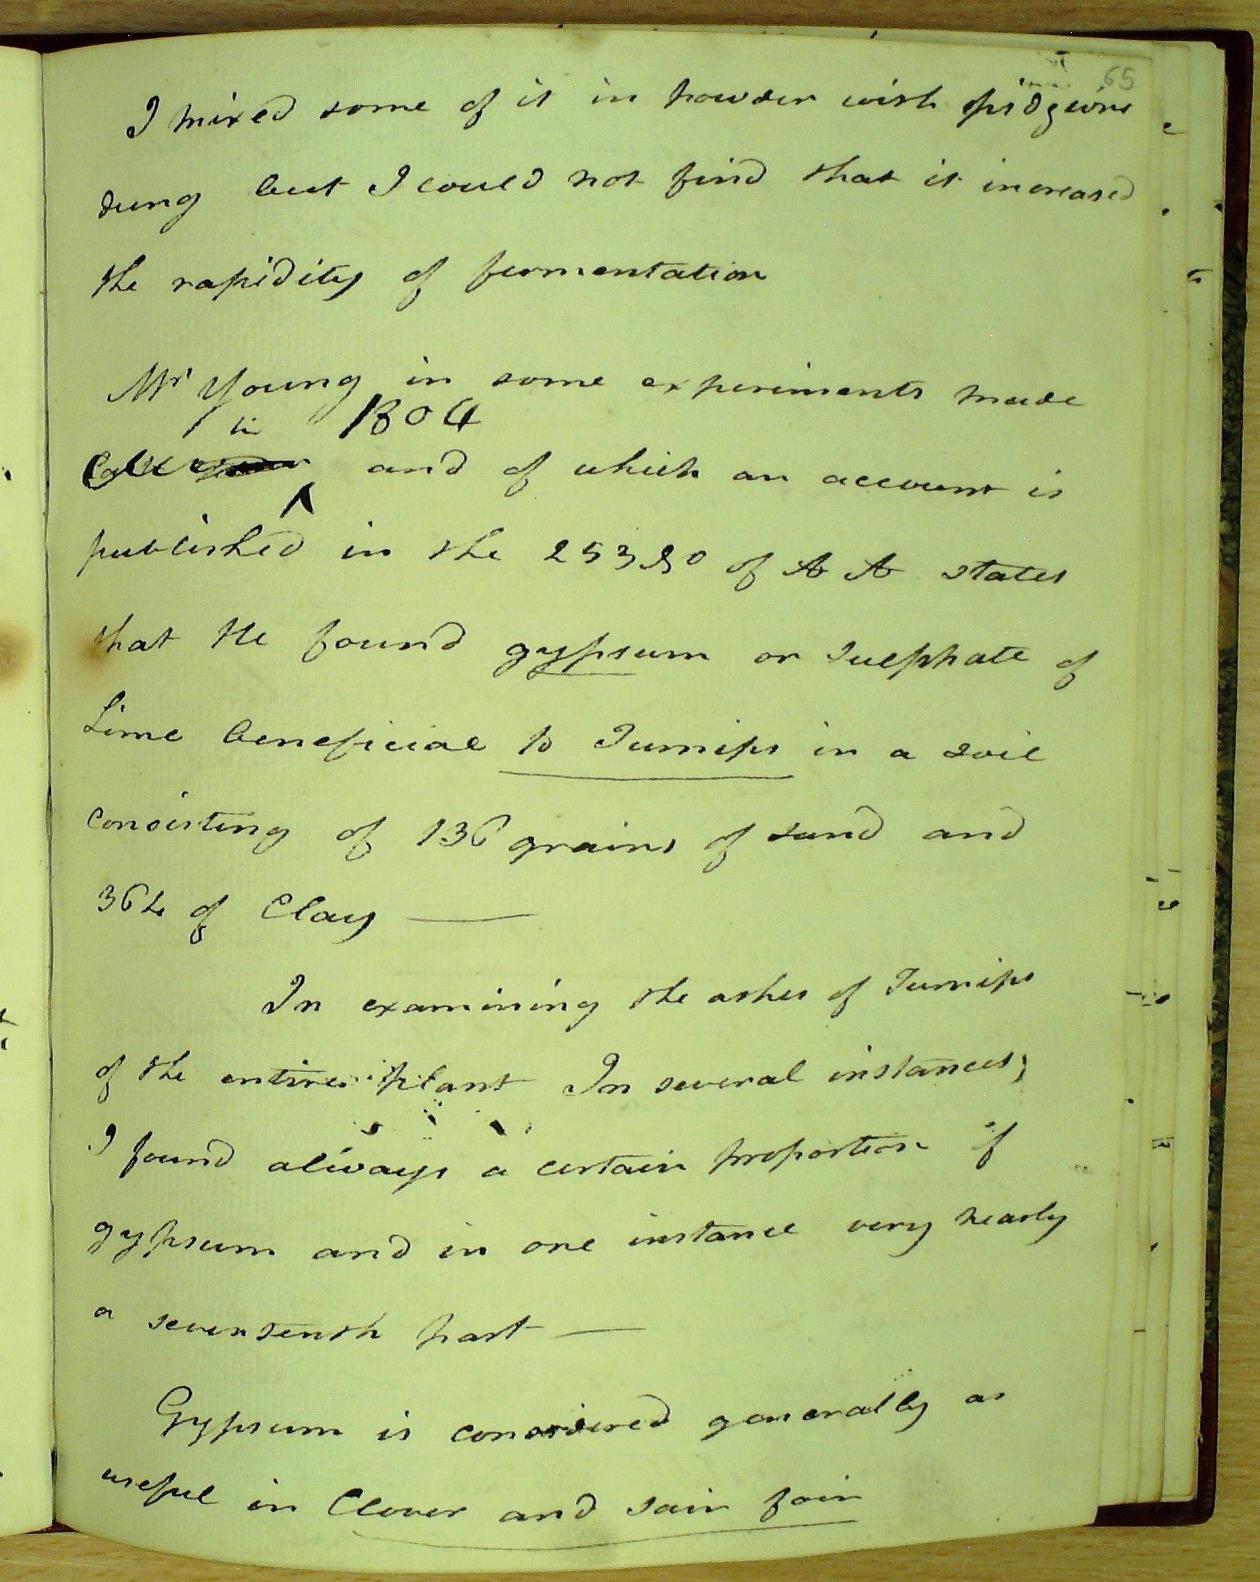 65
I mixed some of it in powder with pidgeons
dung but I could not find that it increased
the rapidity of fermentation
Mr Young in some experiments made
in 1804
and of which an account is
published in the 253 No of A A states
that He found gypsum or sulphate of
Lime beneficial to Turnips in a soil
consisting of 136 grains of sand and
364 of Clay —
In examining the ashes of Turnips
of the entire plant In several instances;
I found always a certain proportion of
gypsum and in one instance very nearly
a sevententh part —
Gypsum is considered generally as
useful in Clover and sain foin